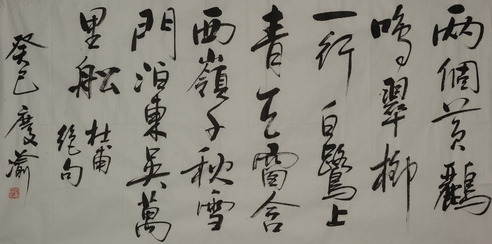 两個黄鸝
鳴翠柳
一行白鷺上
青天窗含
西嶺千秋雪
門泊東吳萬
里船
杜甫
絶句
癸巳